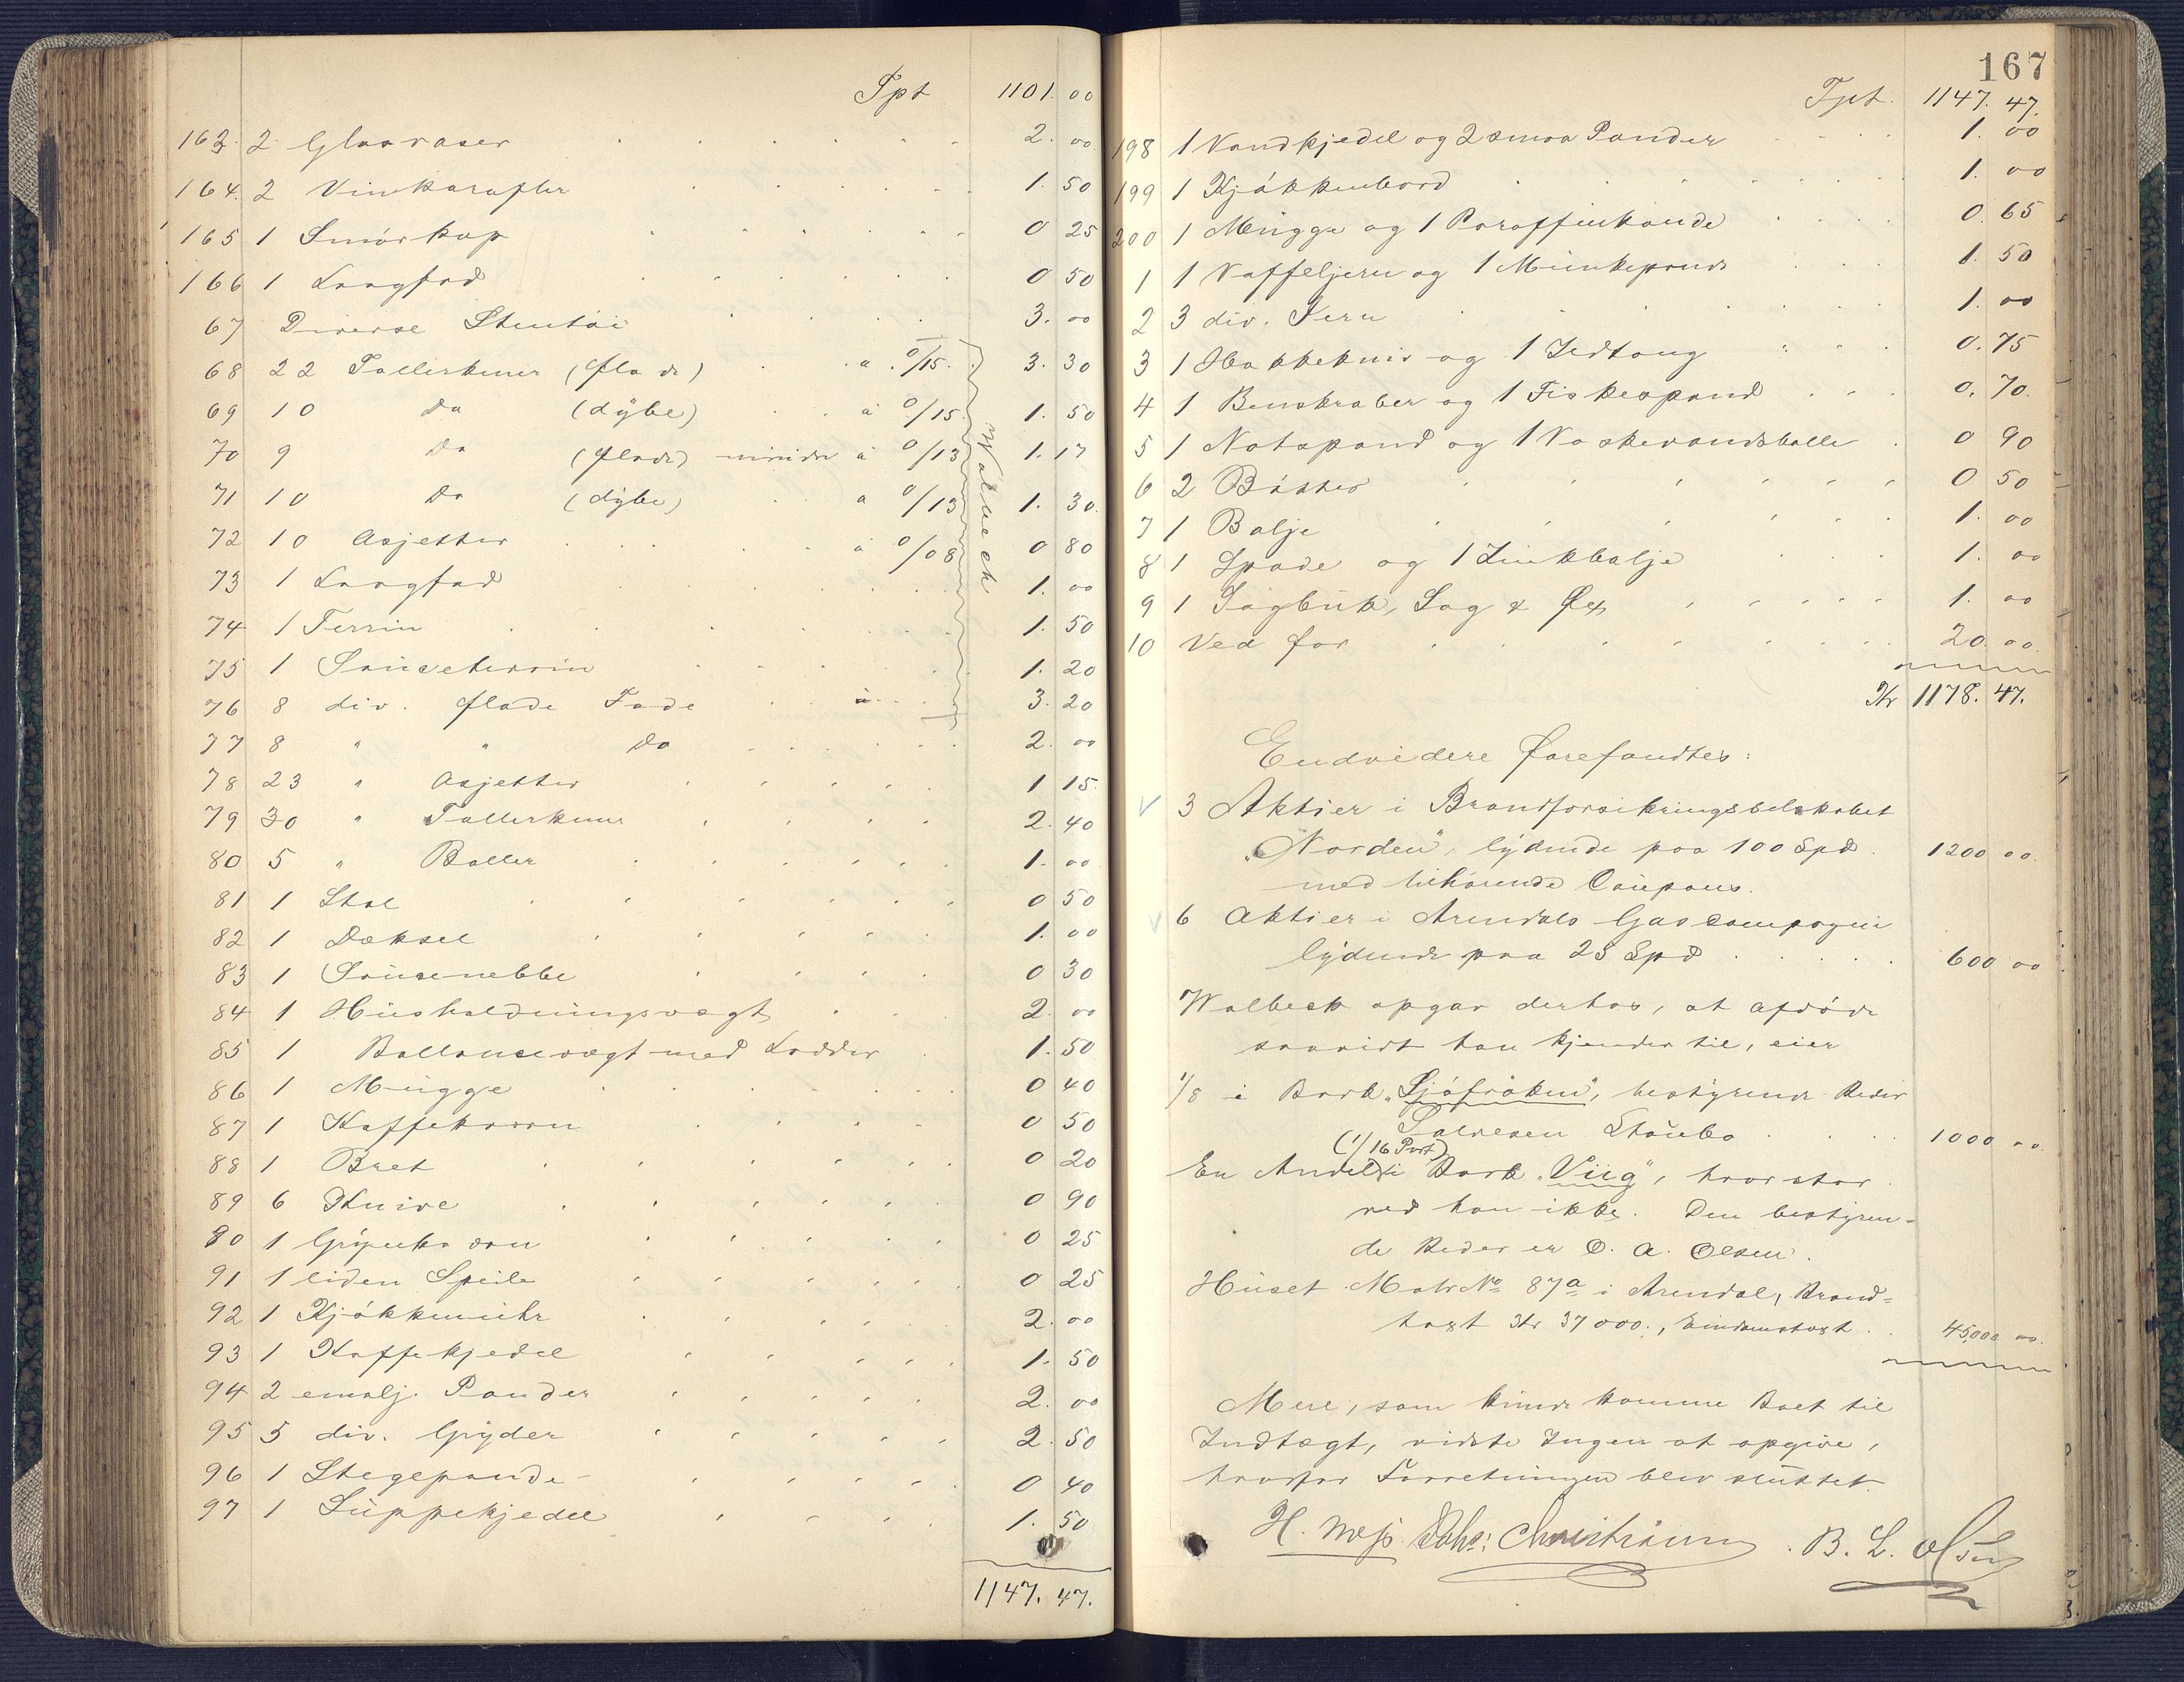 Tpt 1101. 00
163. 2 Glasvaser 2. 00
164. 2 Vinkarafler 1. 50
165 1 Smørkop 0 25
166 1 Langfad 0 50
67 Diverse Stentøi 3. 00
68 22 Tallerkener (flade) a 0/15. 3. 30
69 10 Do (dybe) á 0/15. 1. 50
70 9 Do (flade) mindre á 0/13 1. 17
71 10 Do (dybe) a 0/13 1. 30.
72 10 Asjetter á 0/08 0 80
Walbeck
73 1 Langfad 1. 00
74 1 Terrin 1. 50
75 1 Sauceterrin 1. 20
76 8 div. flade Fade 3. 20
77 8 " " Do 2. 00
78 23 " Asjetter 1 15.
79 30 " Tallerkener 2. 40
80 5 " Boller 1. 00
81 1 Stol 0 50
82 1 Dæksel 1. 00
83 1 Saucenebbe 0 30
84 1 Husholdningsvægt 2. 00
85 1 Ballancevægt med Lodder 1. 50
86 1 Mugge 0 40
87 1 Kaffekværn 0 50
88 1 Bret 0 20
89 6 Knive 0 90
90 1 Grynkværn 0 25
91 1 liden Speile 0 25
92 1 Kjøkkenuhr 2. 00
93 1 Kaffekjedel 1. 50
94 2 emalj. Pander 2. 00
95 5 div. Gryder 2. 50
96 1 Stegepande 0 40
97 1 Suppekjedel 1. 50
1147. 47.
167
Tpt. 1147. 47.
198 1 Vandkjedel og 2 smaa Pander 1. 00
199 1 Kjøkkenbord 1. 00
200 1 Mugge og 1 Paraffinkande 0 65
1 1 Vaffeljern og 1 Munkepande 1. 50
2 3 div. Jern 1. 00
3 1 Hakkekniv og 1 Ildtang 0. 75
4 1 Benskraber og 1 Fiskespand 0. 70.
5 1 Natspand og 1 Vaskevandsballe 0 90
6 2 Bøtter 0 50
7 1 Balje 1. 00
8 1 Spade og 1 Zinkbalje 1. 00
9 1 Sagbuk, Sag & Øx 1. 00
10 Ved for 20. 00.
Kr 1178. 47.
Endvidere forefandtes:
3 Aktier i Brandforsikringsselskabet
"Norden", lydende paa 100 Spd 1200 00.
med tilhørende Coupons.
6 Aktier i Arendals Gascompagni
lydende paa 25 Spd 600 00
Walbeck opgav derhos, at afdøde
saavidt han kjender til, eier
1/8 i Bark "Sjøfrøken", bestyrende Reder
Salvesen Staubo 1000 00
(1/16 Part)
En Andel i Bark "Viig", hvor stor
ved han ikke. Den bestyren-
de Reder er O. A. Olsen.
Huset Matr No 87a i Arendal, Brand-
taxt Kr 37000., Eiendomstaxt 45,000 00.
Mere, som kunde komme Boet til
Indtægt, vidste Ingen at opgive,
hvorfor Forretningen blev sluttet.
H. Christiansen B. L. Olsen